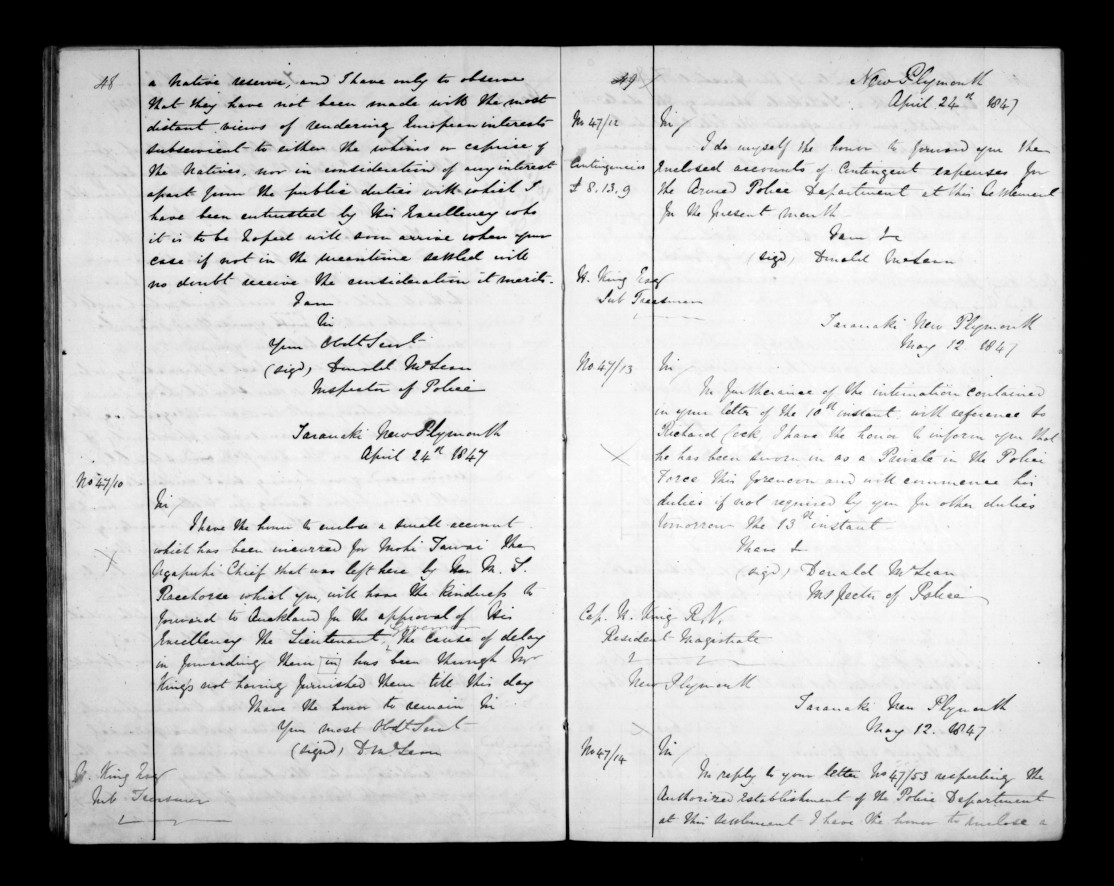 48
a native reserve, and I have only to observe
that they have not been made with the most
distant views of rendering European interests
subservient to either the whims or caprice of
the Natives, nor in consideration of any interest
apart from the public duties with which I
have been entrusted by His Excellency who
it is to be hoped will soon arrive when your
case if not in the meantime settled will
no doubt receive the consideration it merits.
I am
Sir
Your Obdt Servt
(sigd) Donald McLean
Inspector of Police
Taranaki New Plymouth
April 24th 1847
No 47/10
Sir/
I have the honor to enclose a small account
which has been incurred for Mohi Tawai the
Ngapuhi Chief that was left here by Her M. S.
Racehorse which you will have the kindness to
forward to Auckland for the approval of His
Excellency the Lieutenant Governor, the cause of delay
in forwarding them [in] has been through Mr
King's not having furnished them till this day
I have the honor to remain Sir
Your most Obdt Servt
(signed) D McLean
W. King Esq
Sub Treasurer
49
New Plymouth
April 24th 1847
No 47/12
Sir/
I do myself the honor to forward you the
Contingencies
enclosed accounts of Contingent expenses for
£ 8.13.9
the Armed Police Department at this Settlement
for the present month
I am &c
(sigd) Donald McLean
W. King Esq
Sub Treasurer
Taranaki New Plymouth
May 12 1847
No 47/13
Sir/
In furtherance of the intimation contained
in your letter of the 10th instant, with reference to
Richard Cock, I have the honor to inform you that
he has been sworn in as a Private in the Police
Force this forenoon and will commence his
duties if not required by you for other duties
tomorrow the 13th instant
I have &c
(sigd) Donald McLean
Inspector of Police
Cap. H. King R.N.
Resident Magistrate
New Plymouth
Taranaki New Plymouth
May 12. 1847
No 47/14
Sir/
In reply to your letter No 47/53 respecting the
Authorized establishment of the Police Department
at this settlement I have the honor to enclose a